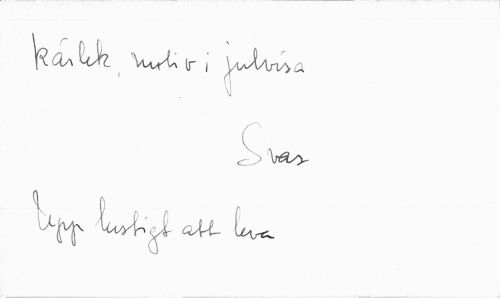 kärlek, motiv i julvisa
Svar
Upp lustigt att leva